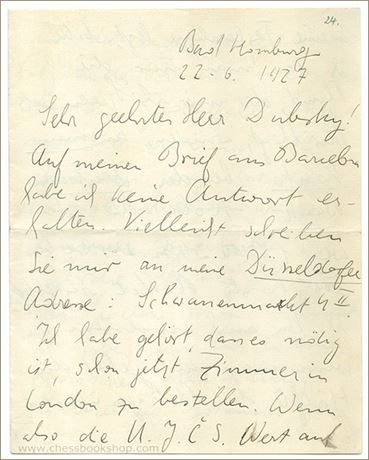 24.
Bad Homburg
22.6. 1927
Sehr geehrter Herr Duberky!
Auf meinen Brief aus Barcelona
habe ich keine Antwort er-
halten. Vielleicht schreiben
Sie mir an meine Düsseldorfer
Adresse: Schwanenmarkt 4 II.
Ich habe gehört, dass es nötig
ist, schon jetzt Zimmer in
London zu bestellen. Wenn
also die U.J.Č.S. Wert auf
www.chessbookshop.com